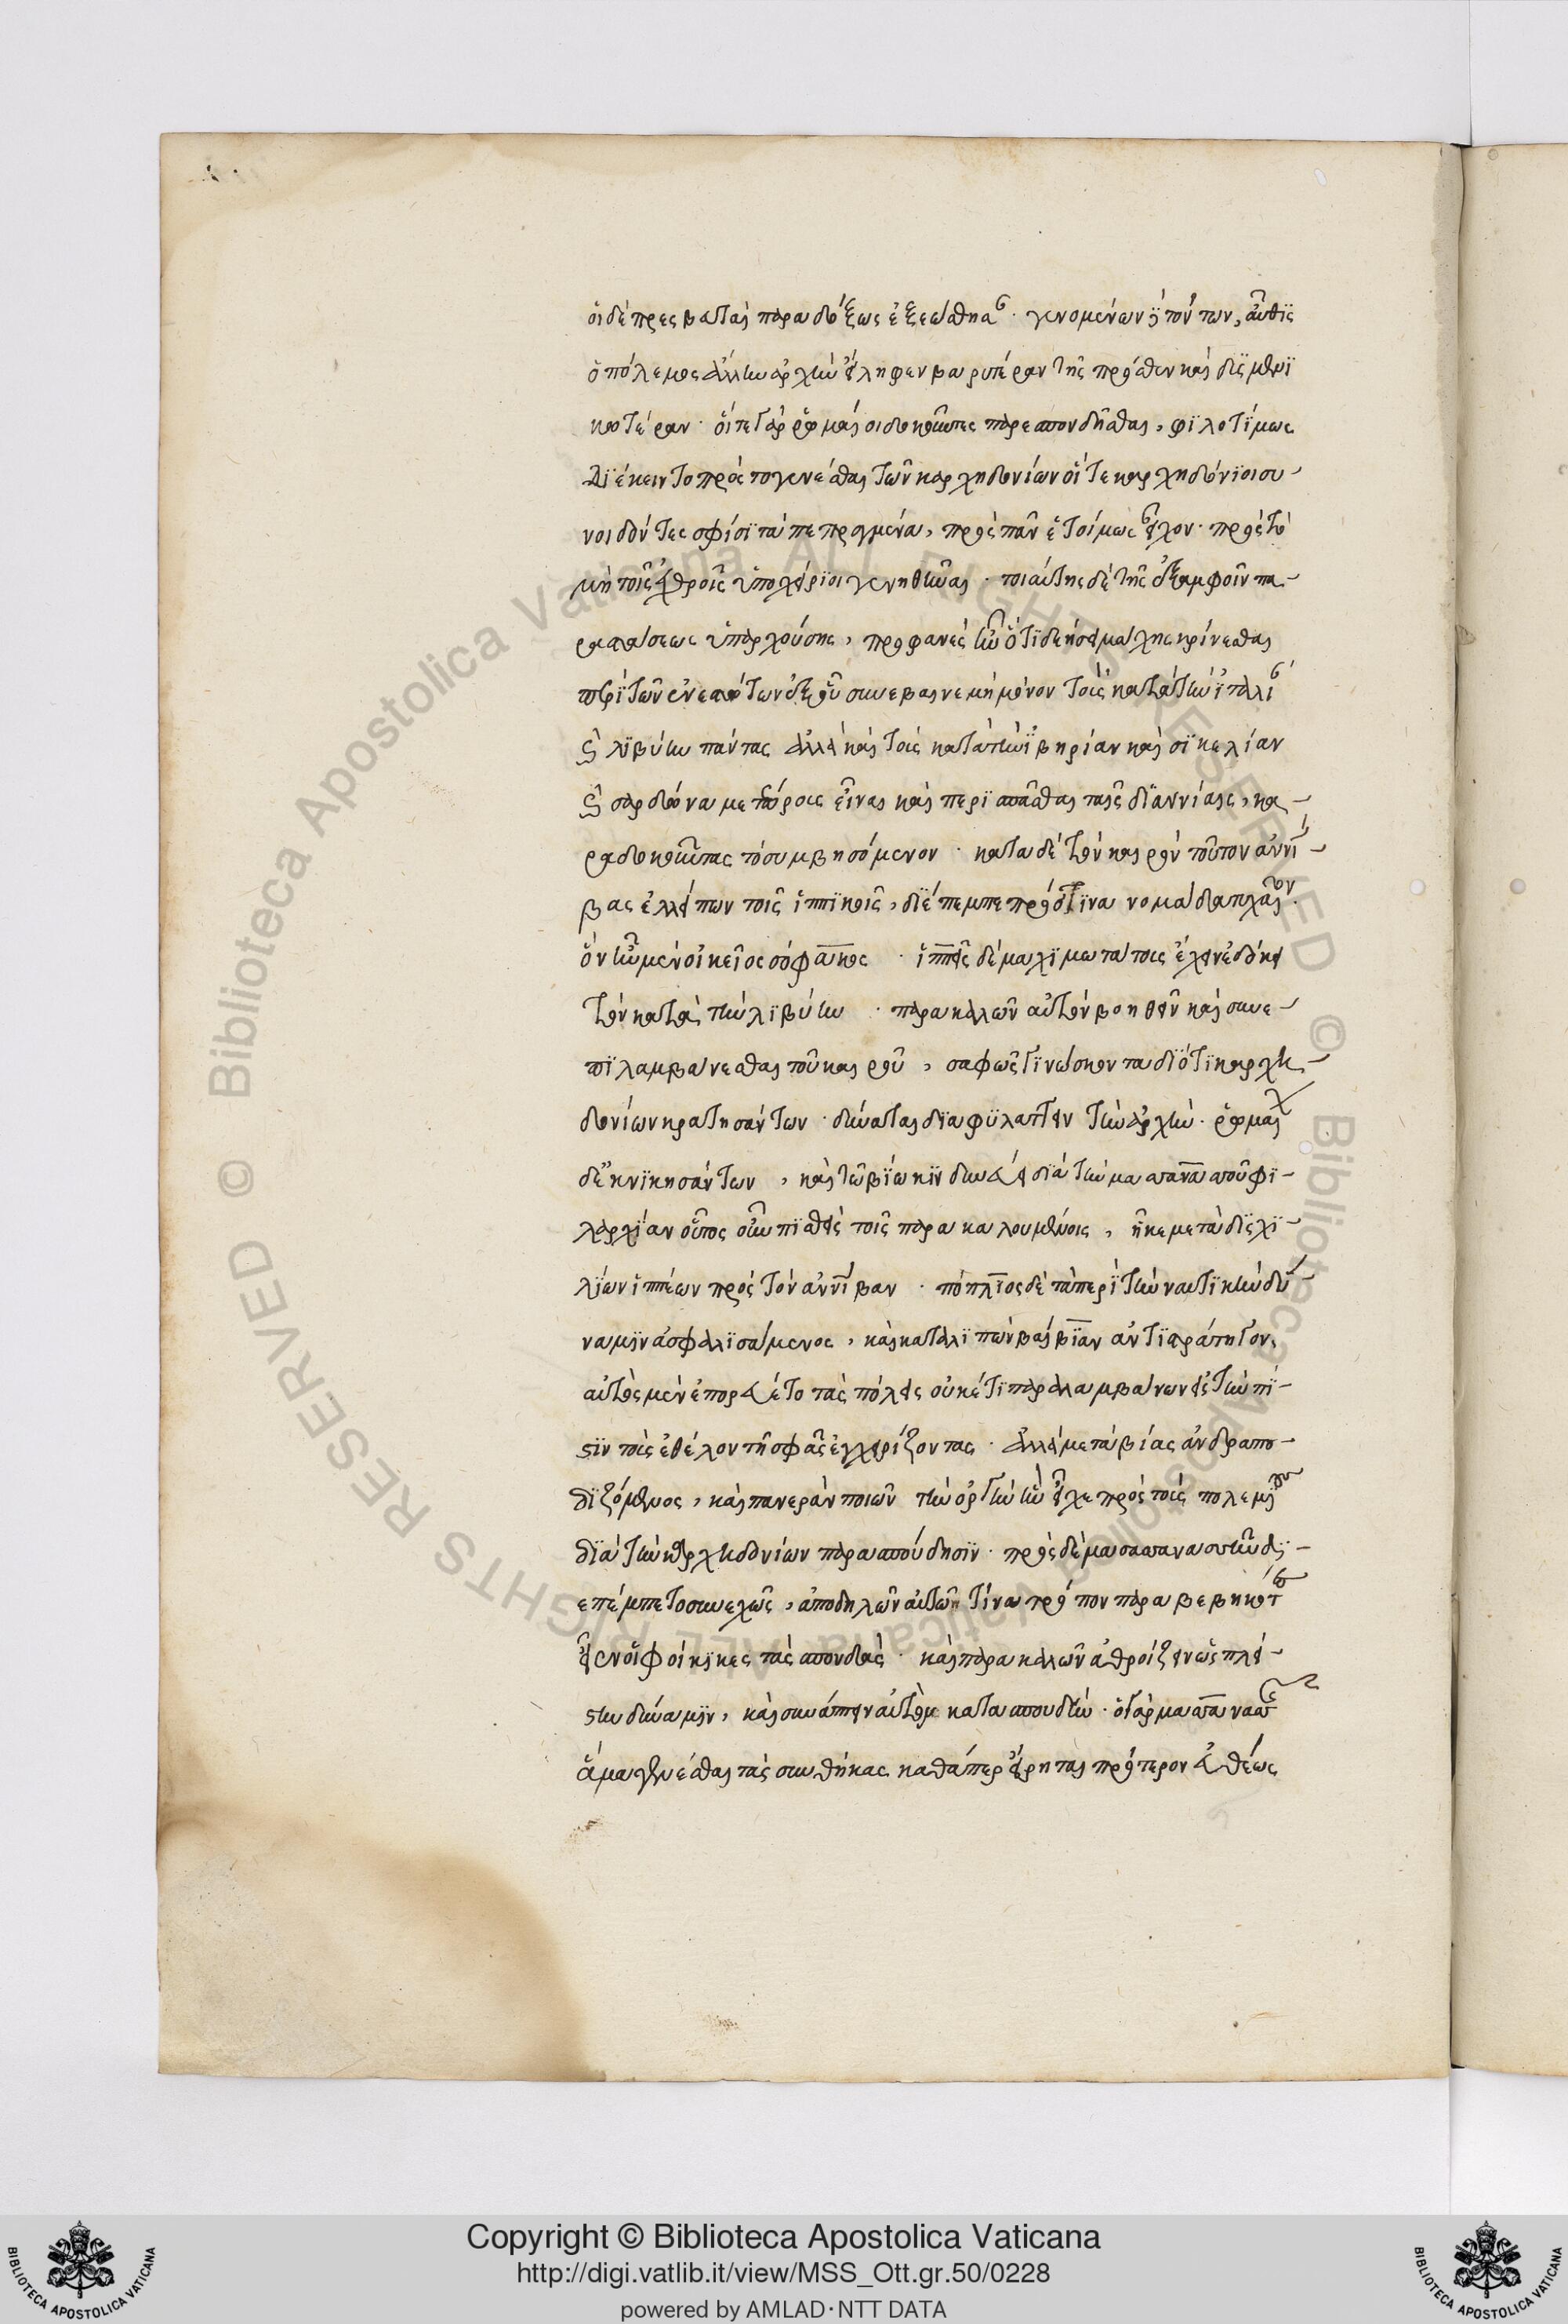 οἱ δὲ πρεσβευταὶ παραδόξως ἐξεσώθησαν. γενομένων δὲ τούτων, αὖθις
ὁ πόλεμος ἄλλην ἀρχὴν εἰλήφει βαρυτέραν τῆς πρόσθεν καὶ δυσμενι
κωτέραν. οἵ τε γὰρ ῥωμαῖοι δοκοῦντες παρεσπονδῆσθαι, φιλοτίμως
διέκειντο πρὸς τὸ γενέσθαι τῶν καρχηδονίων οἵ τε καρχηδόνιοι συ-
νειδότες σφίσι τὰ πεπραγμένα, πρὸς πᾶν ἑτοίμως εἶχον. πρὸς τὸ
μὴ τοῖς ἐχθροῖς ὑποχείριοι γενηθῆναι. τοιαύτης δὲ τῆς ἐξ ἀμφοῖν πα-
ραστάσεως ὑπαρχούσης, προφανὲς ἦν ὅτι δεήσει μάχης κρίνεσθαι
περὶ τῶν ἐνεστώτων ἐξ οὗ συνέβαινε μὴ μόνον τοὺς κατὰ τὴν ἰταλίαν
καὶ λιβύην πάντας ἀλλὰ καὶ τοὺς κατὰ τὴν ἰβηρίαν καὶ σικελίαν
καὶ σαρδόνα μετεώρους εἶναι καὶ περισπᾶσθαι ταῖς διαννίαις, κα-
ραδοκοῦντας τὸ συμβησόμενον. κατὰ δὲ τὸν καιρὸν τοῦτον ἀννί-
βας ἐλλείπων τοῖς ἱππικοῖς, διέπεμπε πρός τινα νομάδα τυχαῖον.
ὃν ἦν μὲν οἰκεῖος σόφακος. ἱππεῖς δὲ μαχιμωτάτους ἔχειν ἐδόκει
τῶν κατὰ τὴν λιβύην. παρακαλῶν αὐτὸν βοηθεῖν καὶ συνε-
πιλαμβάνεσθαι τοῦ καιροῦ, σαφῶς γινώσκοντα διότι καρχη-
δονίων κρατησάντων. δύναται διαφυλάττειν τὴν ἀρχήν. ῥωμαίων
δὲ κνικησάντων, καὶ τῶ βίω κινδυνεύσει διὰ τὴν μασαννάσου φι-
λαρχίαν οὗτος οὖν πισθεὶς τοῖς παρακαλουμένοις, ἧκε μετὰ δισχι-
λίων ἱππέων πρὸς τὸν ἀννίβαν. πόπλιος δὲ τὰ περὶ τὴν ναυτικὴν δύ-
ναμιν ἀσφαλισάμενος, καὶ καταλιπὼν βαίβιον ἀντιστράτηγον,
αὐτὸς μὲν ἐπορεύετο τὰς πόλεις οὐκέτι παραλαμβάνων εἰς τὴν πί-
στιν τοὺς ἐθέλοντῆ σφᾶς ἐγχειρίζοντας. ἀλλὰ μετὰ βίας ἀνδραπο-
διζόμενος, καὶ πανερὰν ποιῶν τὴν ὀργὴν ἣν εἶχε πρὸς τοὺς πολεμίους
διὰ τὴν καρχηδονίων παρασπόνδησιν. πρὸς δὲ μασσανάσαν συνεχῶς δι-
επέμπετο συνεχῶς, ἀποδηλῶν αὐτῶ τίνα τρόπον παραβεβηκότες
εἶεν οἱ φοίνικες τὰς σπονδάς. καὶ παρακαλῶν ἀθροίζειν ὡς πλεί-
στην δύναμιν, καὶ συνάπτειν αὐτὸν κατὰ σπουδήν. ὁ γὰρ μασανάσας
ἅμα γενέσθαι τὰς συνθήκας καθάπερ εἴρηται πρότερον εὐθέως